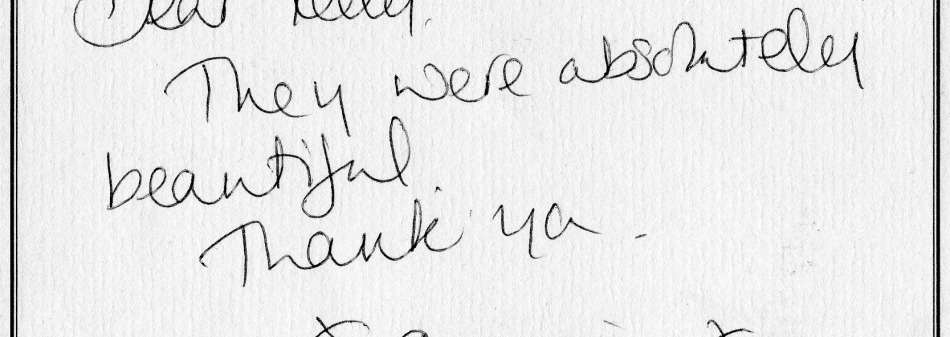 Dear Kelly.
They were absolutely
beautiful.
Thank ya -